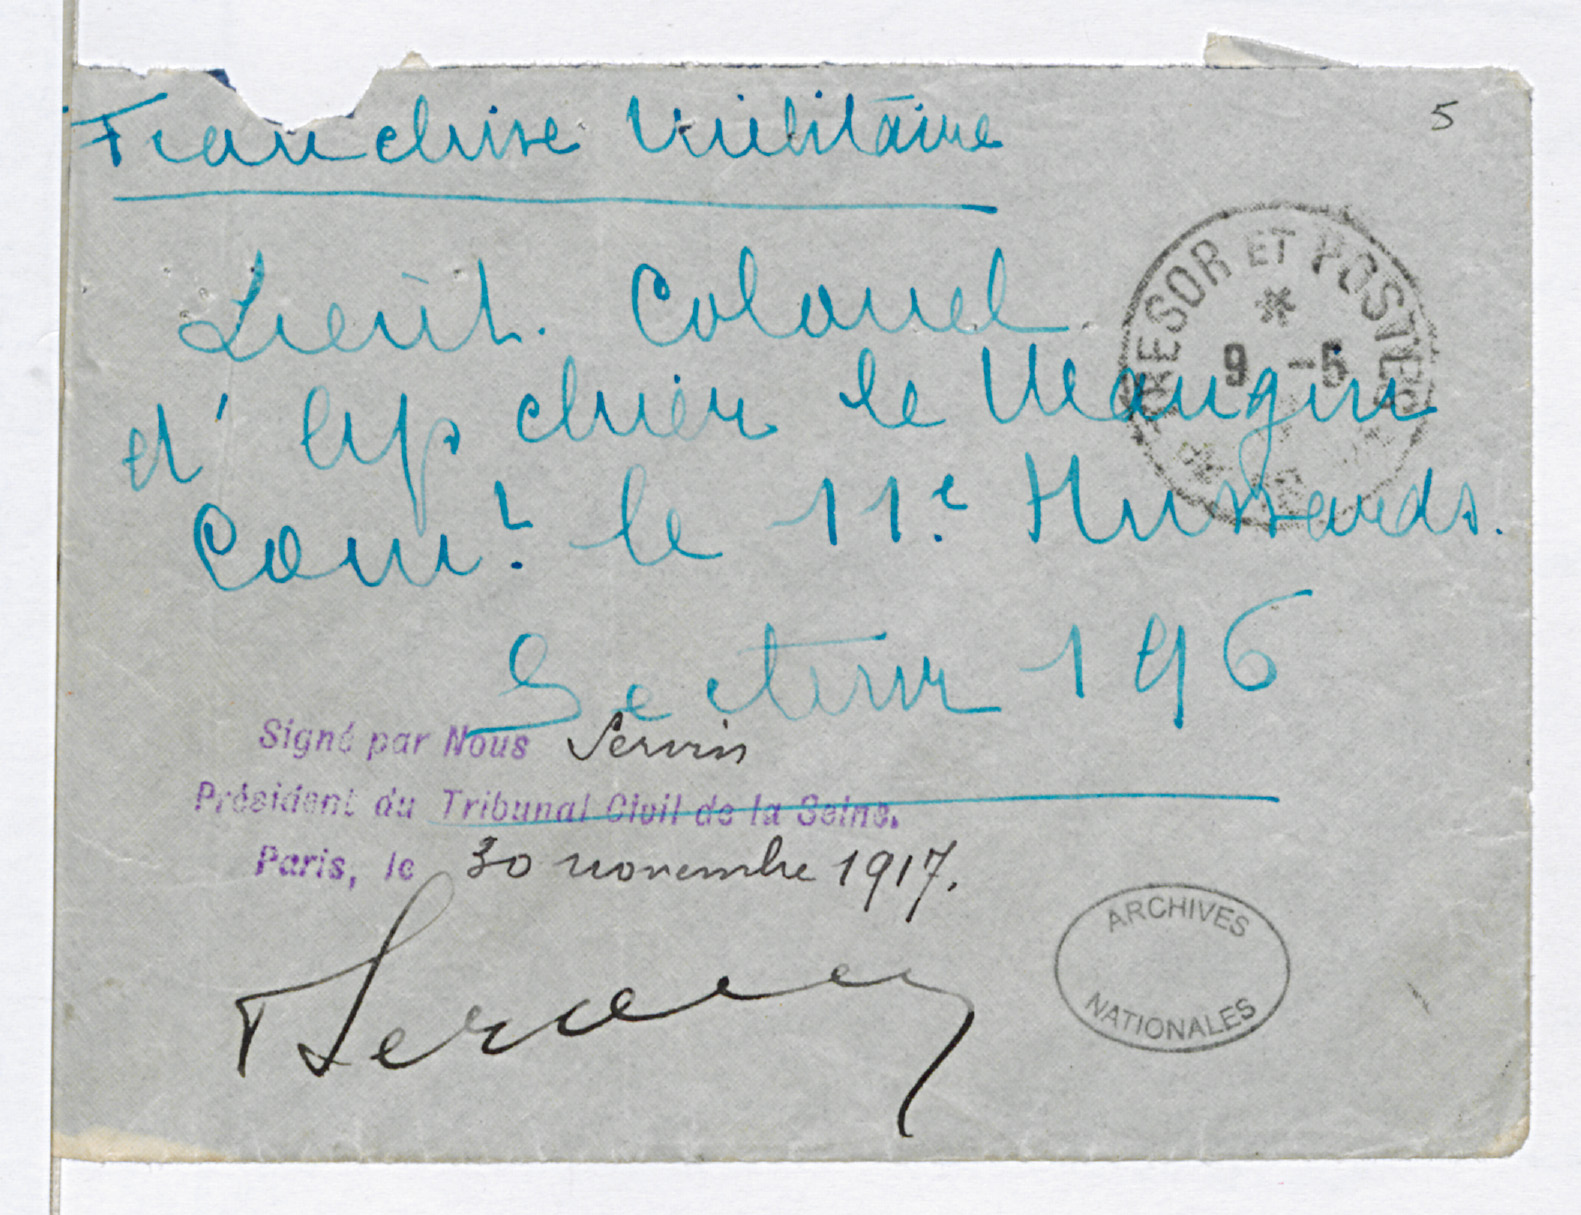 Franchise Militaire
5
TRESOR ET POSTES
*
9 -5
Lieut. Colonel
d'Apchier le Maugin
Comt. le 11e Hussards.
Secteur 196
Signé par Nous Servin
Président du Tribunal Civil de la Seine.
Paris, le 30 novembre 1917.
ARCHIVES
NATIONALES